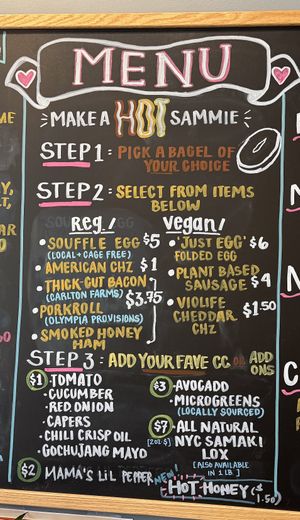 MENU
MAKE A HOT SAMMIE
STEP 1: PICK A BAGEL OF
YOUR CHOICE
STEP 2: SELECT FROM ITEMS
BELOW
Reg!
• SOUFFLE EGG $5
(LOCAL + CAGE FREE)
• AMERICAN CHZ $1
• THICK-CUT BACON
(CARLTON FARMS) $3.75
• PORKROLL
(OLYMPIA PROVISIONS)
• SMOKED HONEY
HAM
Vegan!
• 'JUST EGG' $6
FOLDED EGG
• PLANT BASED
SAUSAGE $4
• VIOLIFE
CHEDDAR $1.50
CHZ
STEP 3: ADD YOUR FAVE CC OR ADD
ONS
$1 • TOMATO
• CUCUMBER
• RED ONION
• CAPERS
• CHILI CRISP OIL
• GOCHUJANG MAYO
$2 MAMA'S LIL PEPPER
$3 • AVOCADO
• MICROGREENS
(LOCALLY SOURCED)
$7 • ALL NATURAL
[2OZ $] NYC SAMAKI
LOX
[ALSO AVAILABLE
IN 1 LB.]
NEW!
HOT HONEY ($
1.50)